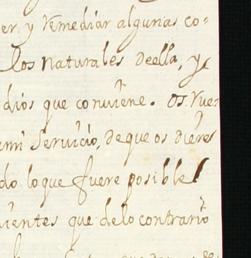 er, y rremediar algunas co-
los naturales deella, y
dios que conviene. os rue
ami servicio, deque os dieres
do loque fuere posible
ientes que delo contrario